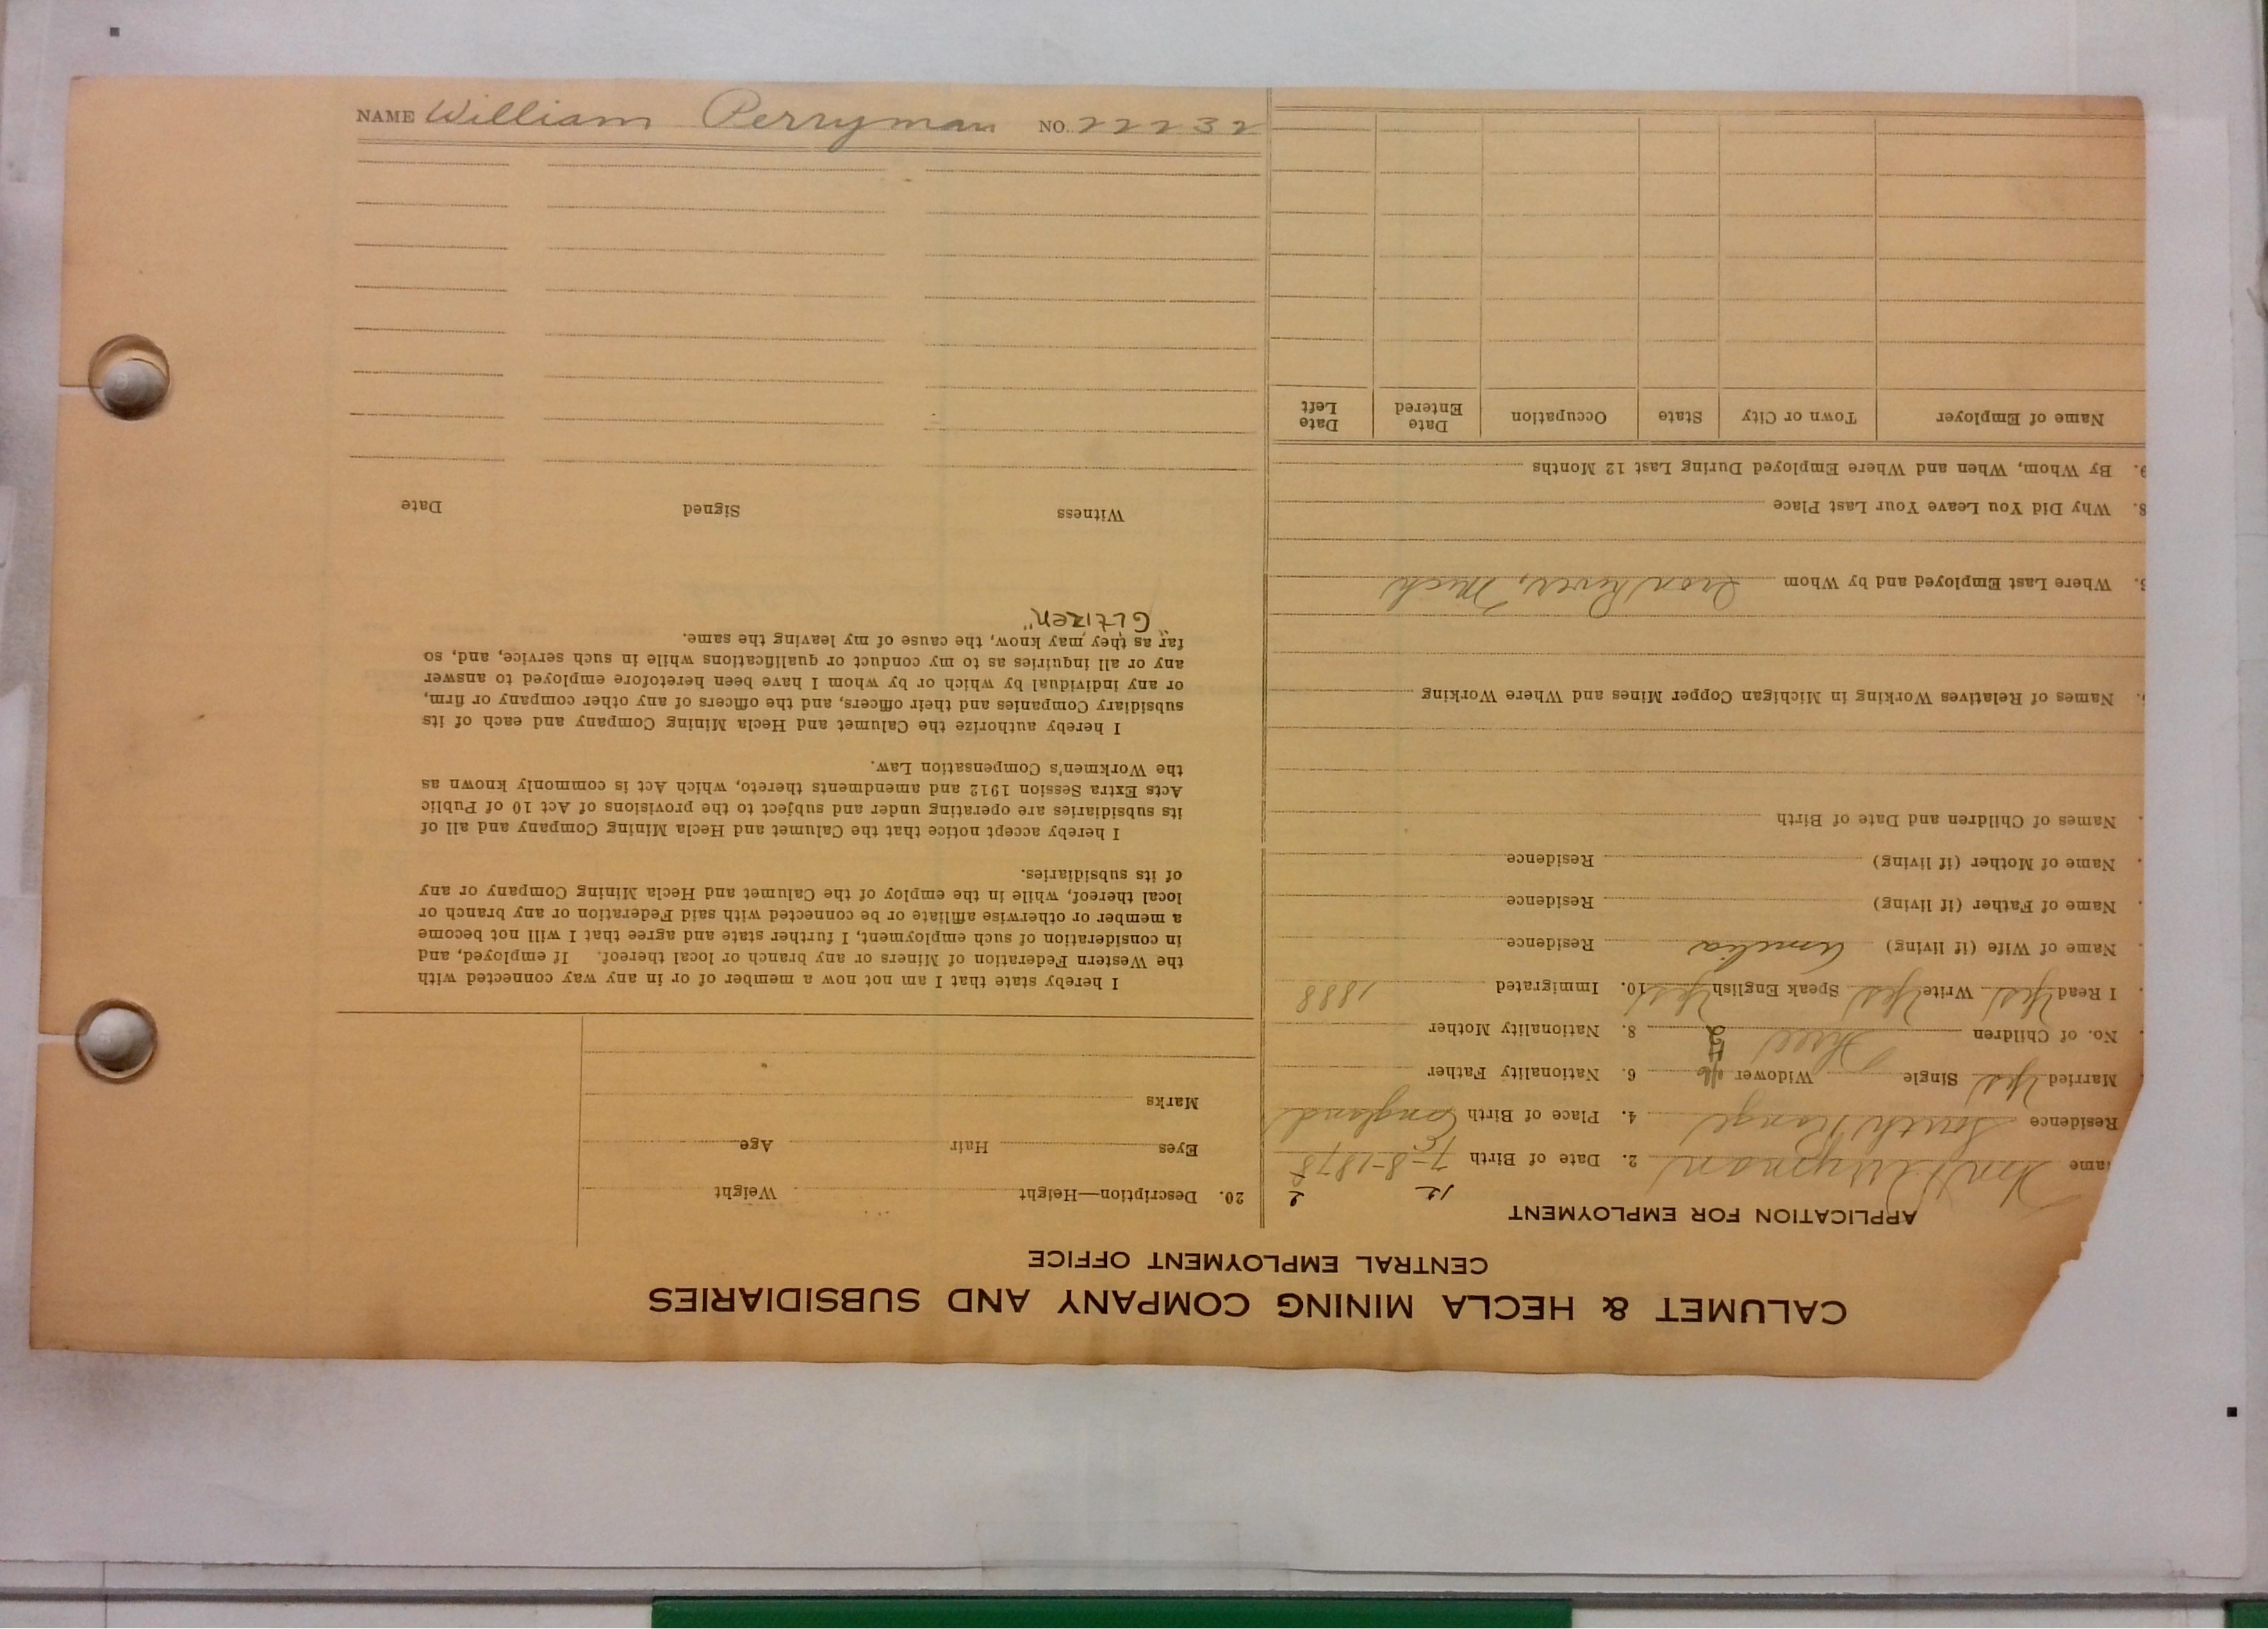 NAME William Perryman NO. 22232
CALUMET & HECLA MINING COMPANY AND SUBSIDIARIES
CENTRAL EMPLOYMENT OFFICE
APPLICATION FOR EMPLOYMENT
ame Wm Perryman 2. Date of Birth 7-8-1878
Residence South Range 4. Place of Birth England
Married Yes Single Widower 6. Nationality Father
No. of Children Three 8. Nationality Mother
I Read Yes Write Yes Speak English Yes 10. Immigrated 1888
Name of Wife (if living) Amelia Residence
Name of Father (if living) Residence
Name of Mother (if living) Residence
Names of Children and Date of Birth
Names of Relatives Working in Michigan Copper Mines and Where Working
Where Last Employed and by Whom Iron River, Mich
8. Why Did You Leave Your Last Place
9. By Whom, When and Where Employed During Last 12 Months
Name of Employer Town or City State Occupation Date Entered Date Left
20. Description—Height Weight
Eyes Hair Age
Marks
I hereby state that I am not now a member of or in any way connected with
the Western Federation of Miners or any branch or local thereof. If employed, and
in consideration of such employment, I further state and agree that I will not become
a member or otherwise affiliate or be connected with said Federation or any branch or
local thereof, while in the employ of the Calumet and Hecla Mining Company or any
of its subsidiaries.
I hereby accept notice that the Calumet and Hecla Mining Company and all of
its subsidiaries are operating under and subject to the provisions of Act 10 of Public
Acts Extra Session 1912 and amendments thereto, which Act is commonly known as
the Workmen's Compensation Law.
I hereby authorize the Calumet and Hecla Mining Company and each of its
subsidiary Companies and their officers, and the officers of any other company or firm,
or any individual by which or by whom I have been heretofore employed to answer
any or all inquiries as to my conduct or qualifications while in such service, and, so
far as they may know, the cause of my leaving the same.
"Citizen"
Witness Signed Date